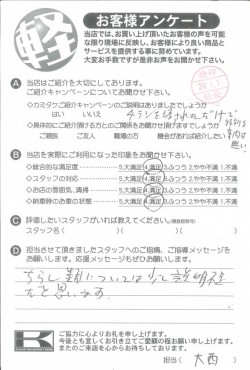 軽
お客様アンケート
当店では、お買い上げ頂いたお客様の声を可能
な限り現場に反映し、お客様により良い商品と
サービスを提供する事に努めています。
大変お手数ですが是非お声をお聞かせ下さい。
A 当店はご紹介を大切にしております。
ご紹介キャンペーンについてお聞かせ下さい。
・カミタケご紹介キャンペーンのご説明はありましたでしょうか
はい いいえ
・具体的にご紹介頂ける方とのご関係をお聞かせ頂けますでしょうか
ご親族 ご友人 職場の方 機会があれば紹介したい
B 当店を実際にご利用になった印象をお聞かせ下さい。
◇総合的な満足度 5.大満足 4.満足 3.ふつう 2.やや不満 1.不満
◇スタッフの対応 5.大満足 4.満足 3.ふつう 2.やや不満 1.不満
◇お店の雰囲気、清掃 5.大満足 4.満足 3.ふつう 2.やや不満 1.不満
◇納車時のお車の状態 5.大満足 4.満足 3.ふつう 2.やや不満 1.不満
C 評価したいスタッフがいれば教えてください。
スタッフ名( )( )( )
D 担当させて頂きましたスタッフへのご指摘、ご指導メッセージを
お願いします。応援メッセージもぜひお願いします。
と思います。
K
ご協力に心よりお礼を申し上げます。
今後とも宜しくお引き立てご愛顧の程お願い申し上げます。
またのご来店を心からお待ちしております。
担当( 大西 )